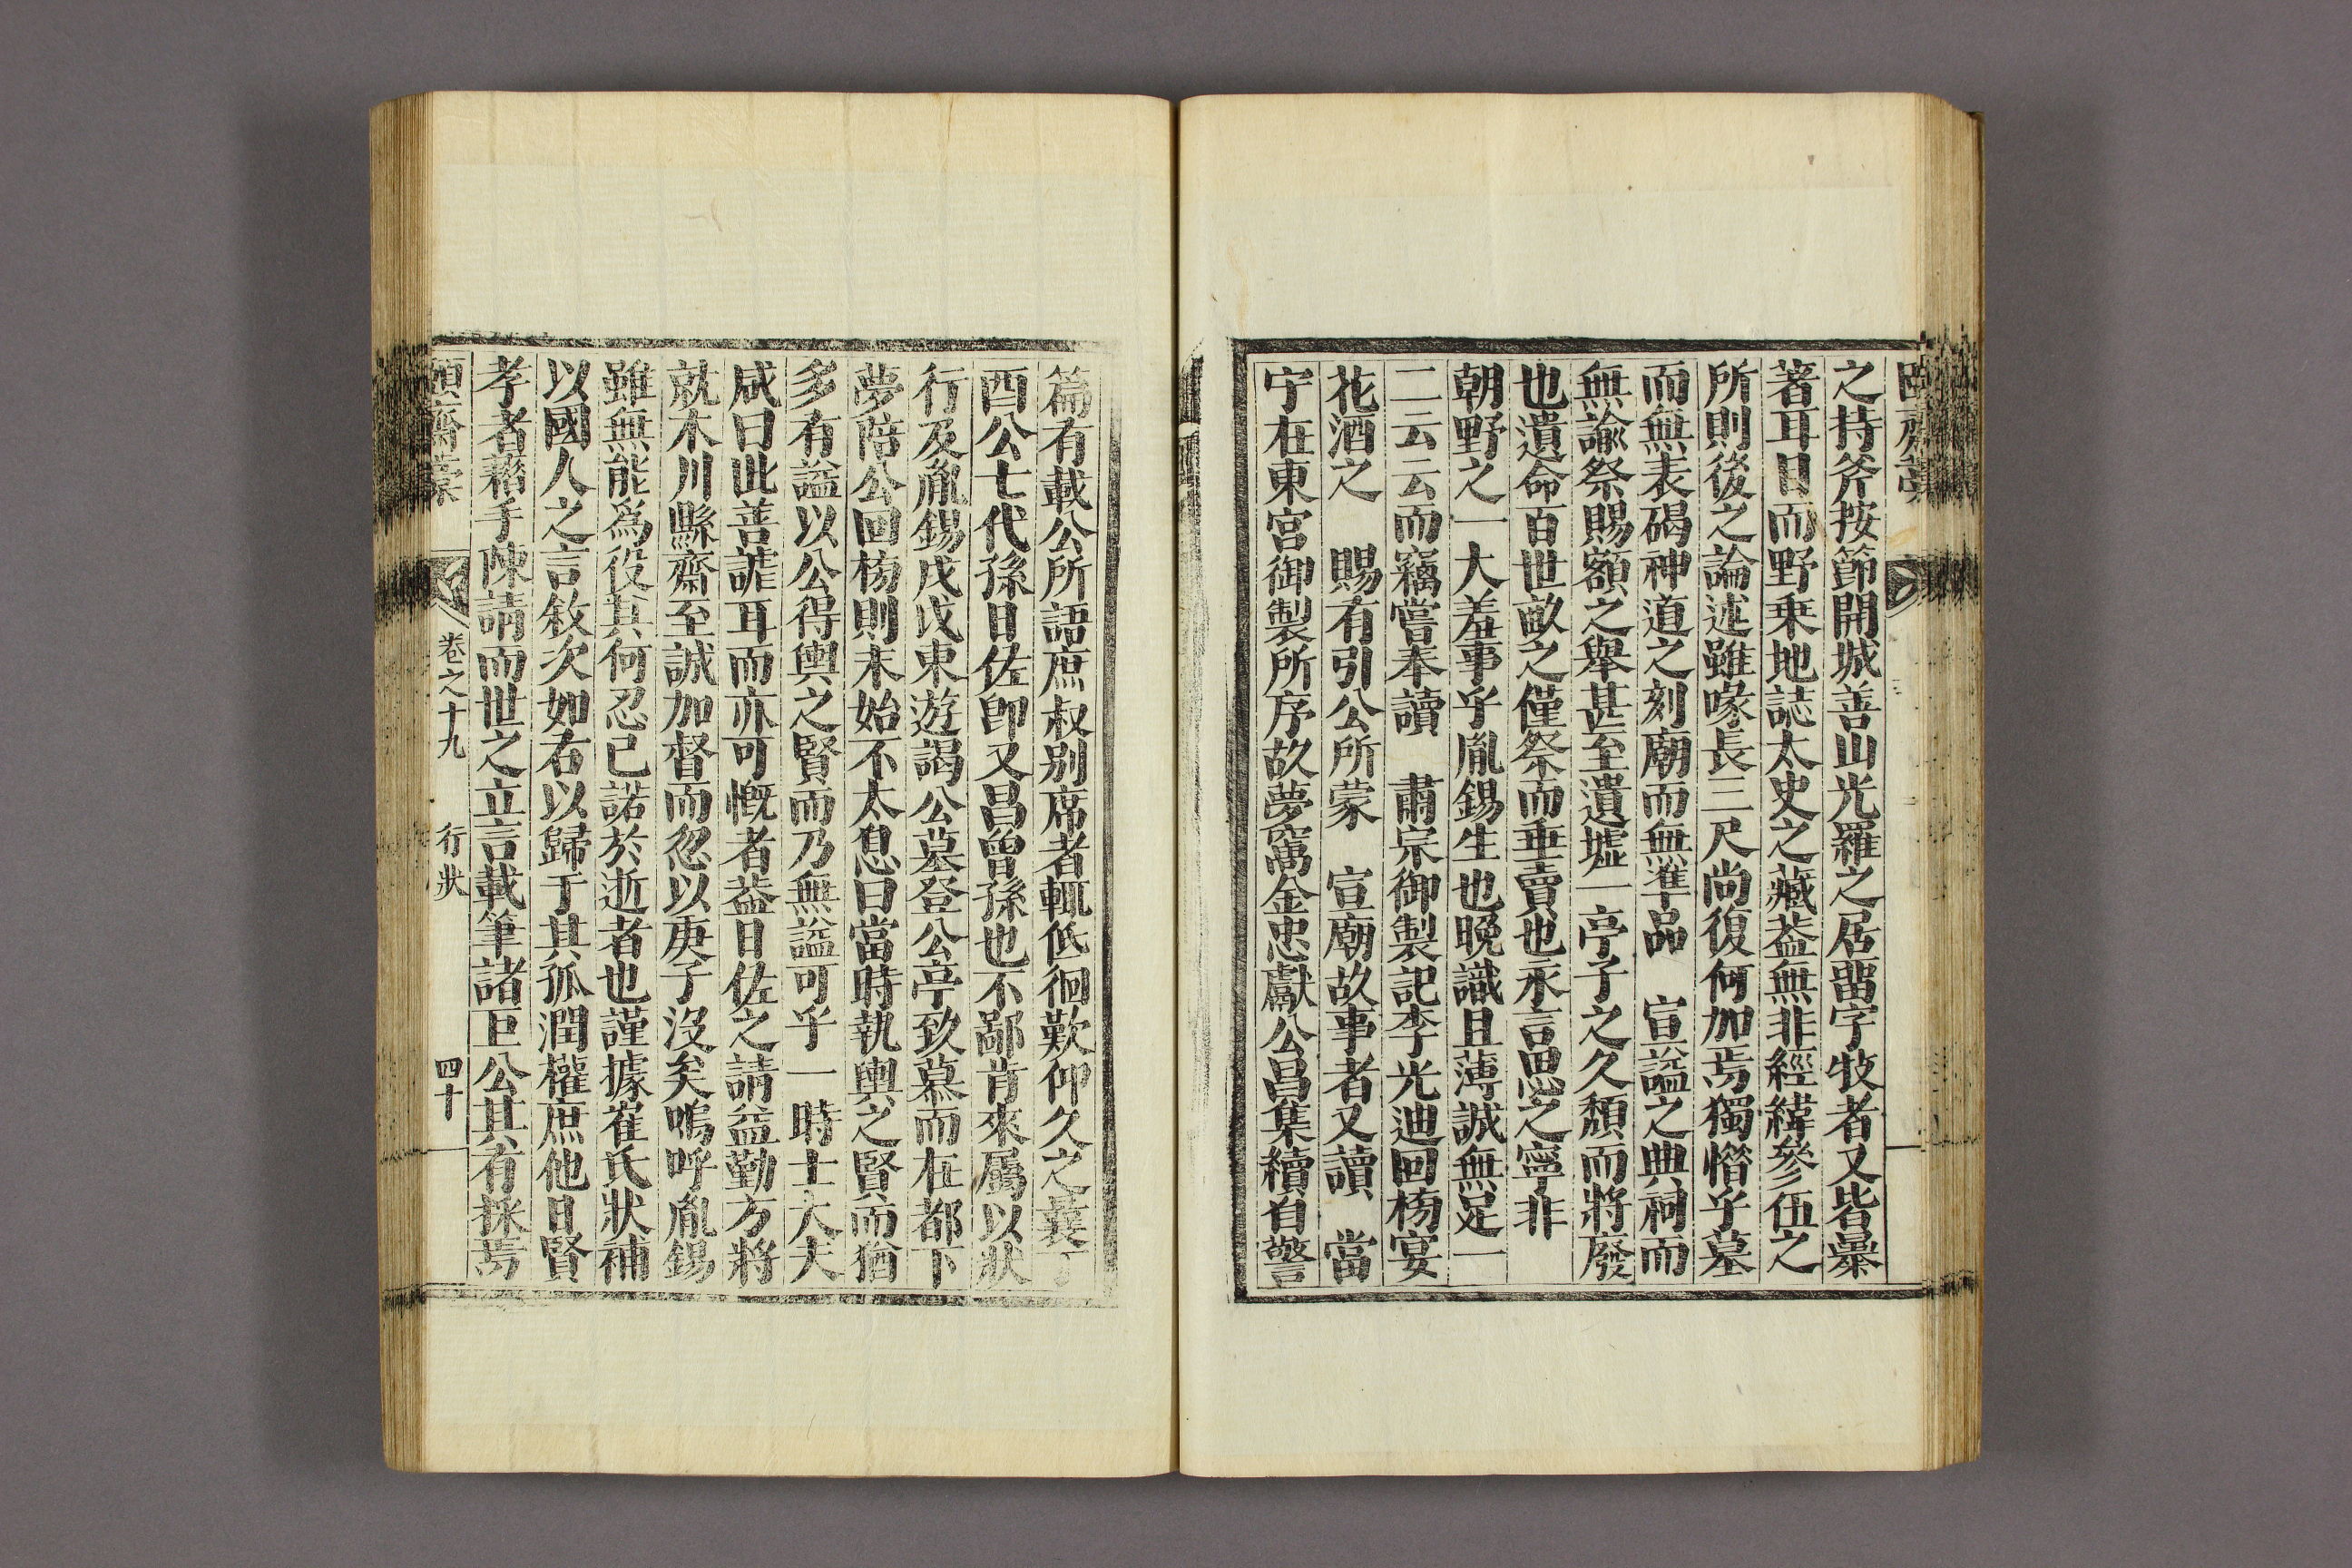 之持斧按節開城善山光羅之居畱字牧者又皆㬥
著耳目而野乗地誌太史之藏葢無非經緯參伍之
所則後之論述雖喙長三尺尚復何加焉獨憯乎墓
而無表碣神道之刻廟而無準品　宣謚之典祠而
無諭祭賜額之舉甚至遺墟一亭子之久頹而將廢
也遺命百世畝之僅祭而垂賣也永言思之寧非
朝野之一大羞事乎胤錫生也晚識且薄誠無足一
二云云而竊嘗奉讀　肅宗御製記李光迪回榜宴
花酒之　賜有引公所蒙　宣廟故事者又讀　當
宁在東宮御製所序故夢窩金忠獻公昌集續自警
篇有載公所語庶叔别席者輒低徊歎仰久之曩
酉公七代孫日佐卽又昌曾孫也不鄙肯來屬以狀
行及胤錫戊戌東遊謁公墓登公亭致慕而在都下
夢陪公回榜則未始不太息曰當時執輿之賢而猶
多有謚以公得輿之賢而乃無謚可乎一時士大夫
咸曰此善謔耳而亦可慨者葢日佐之請益勤方將
就木川縣齋至誠加督而忽以庚子沒矣嗚呼胤錫
雖無能爲役其何忍已諾於逝者也謹據崔氏狀補
以國人之言敘次如右以歸于其孤潤權庶他日賢
孝者藉手陳請而世之立言載筆諸巨公其有採焉
頤齋藁　卷之十九　行狀　四十